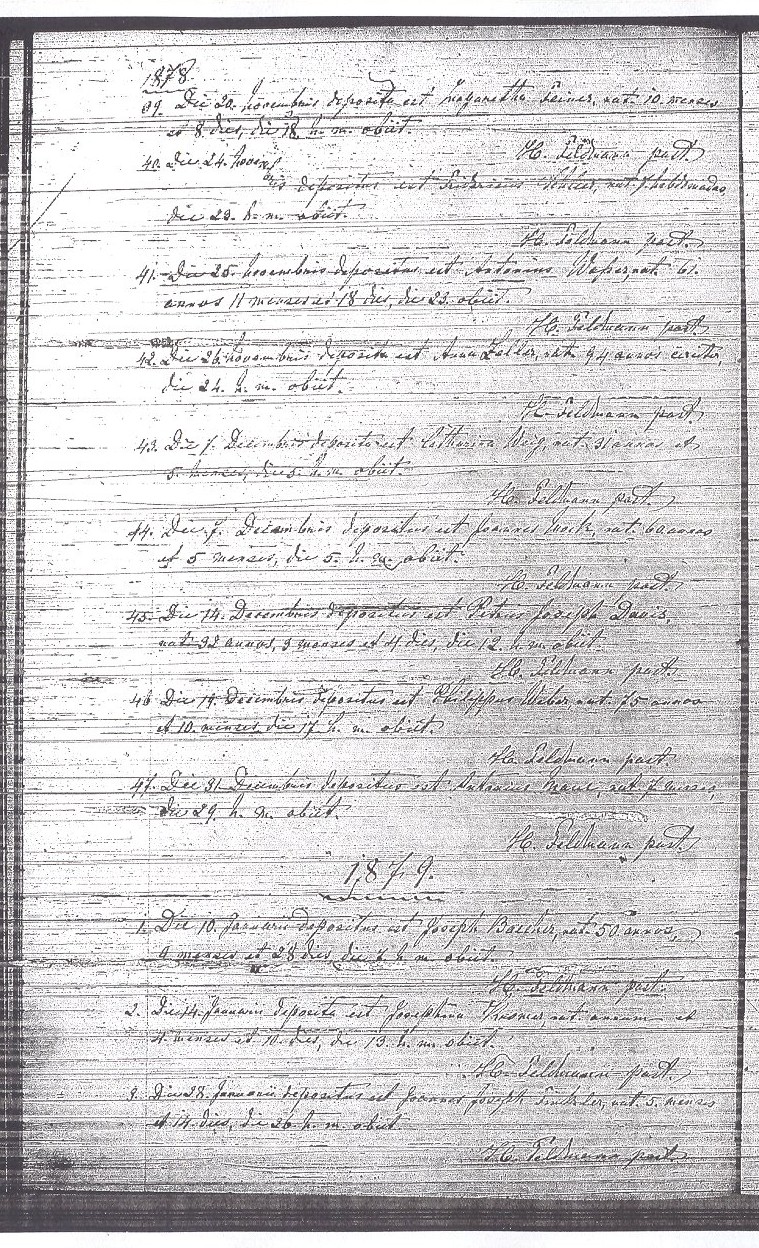 1878
39. Die 20. Novembris deposita est Margaretha Feiner, nat. 10. menses
et 8. dies, die 18 h. m. obiit.
H. Feldmann past.
40. Die 24. Novem
bris depositus est Fridericus nat. 7. hebdomadas,
die 23. h. m. obiit.
H. Feldmann past.
41. Die 25. Novembris depositus est Antonius nat. 61.
annos 11 menses et 18 dies, die 23. obiit.
H. Feldmann past.
42. Die 26. Novembris deposita est Anna Zeller, nat. 94 annos circiter,
die 24. h. m. obiit.
H. Feldmann past.
43. Die 7. Decembris deposita est Catharina Weig, nat. 31 annos et
5. menses, die 5. h. m. obiit.
H. Feldmann past.
44. Die 7. Decembris depositus est Joannes nat. 60 annos
et 5 menses, die 5. h. m. obiit.
H. Feldmann past.
45. Die 14. Decembris depositus est Petrus Joseph Davis,
nat. 32 annos, 3 menses et 4 dies, die 12. h. m. obiit.
H. Feldmann past.
46 Die 19. Decembris depositus est Philippus Weber nat. 75 annos
et 10. menses, die 17 h. m. obiit.
H. Feldmann past.
47. Die 31. Decembris depositus est Antonius nat. 7 menses,
die 29. h. m. obiit.
H. Feldmann past.
1879.
1. Die 10. Januarii depositus est Joseph Bascher, nat. 50 annos,
9 menses et 28 dies, die 7 h. m. obiit.
H. Feldmann past.
2. Die 14. Januarii deposita est Josephina nat. annum et
4 menses et 10. dies, die 13. h. m. obiit.
H. Feldmann past.
3. Die 28. Januarii depositus est Joannes Joseph nat. 5. menses
et 14. dies, die 26. h. m. obiit
H. Feldmann past.